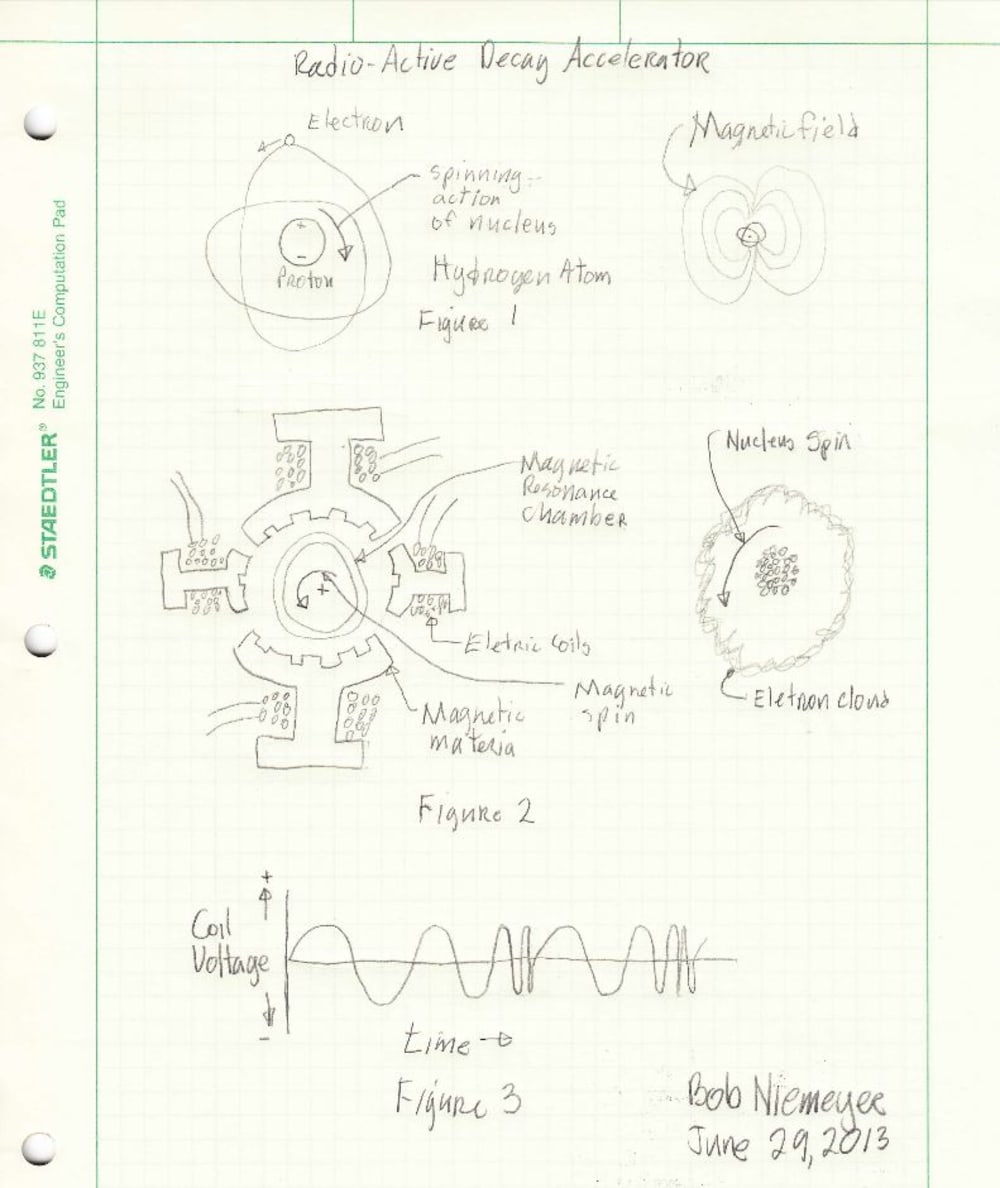 Radio-Active Decay Accelerator
Electron
Magnetic field
spinning
action
of nucleus
+
-
Proton
Hydrogen Atom
Figure 1
No. 937 811E
Engineer's Computation Pad
STAEDTLER®
Nucleus Spin
Magnetic
Resonance
chamber
+
Eletric Coils
Magnetic
spin
Eletron cloud
Magnetic
materia
Figure 2
+
Coil
Voltage
-
time
Figure 3
Bob Niemeyer
June 29, 2013